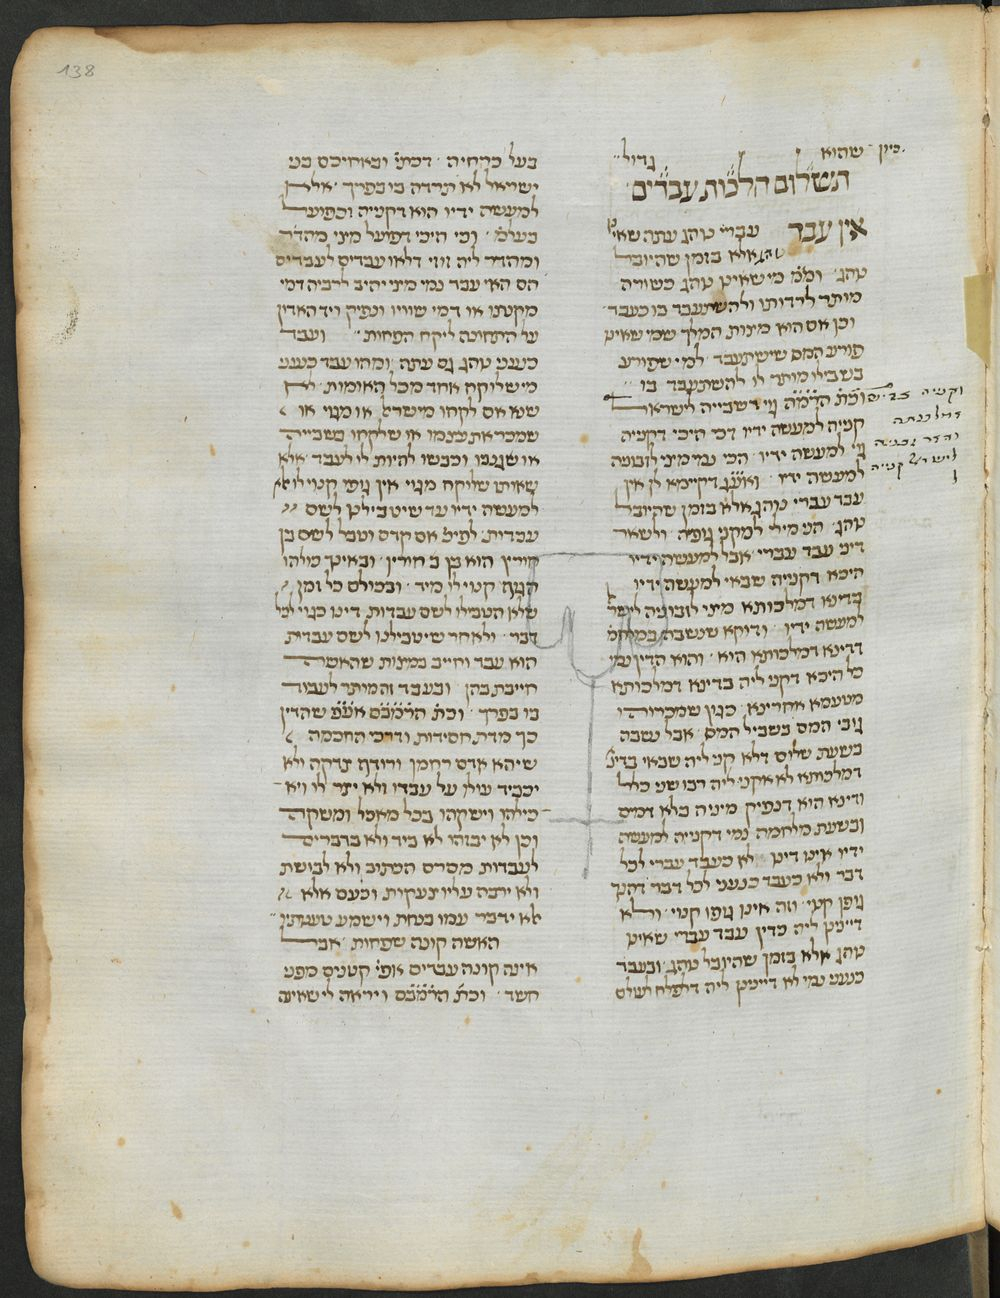 138
כיון שהוא גדול
תשלום הלכות עבדים
אין עבד עברי נוהג עתה שאין
נוהג אלא בזמן שהיובל
נוהג ומ״מ מי שאינו נוהג כשורה
מותר לרדותו ולהשתעבד בו כעבד
וכן אם הוא מינות המלך שמי שאינו
פורע המס שישתעבד למי שפורע
בשבילו מותר לו להשתעבד בו
וכת׳ הרמ״ה גוי דשבייה לישראל
קנייה למעשה ידיו דכי היכי דקנייה
גוי למעשה ידיו הכי נמי מיני לזבוניה
למעשה ידיו ואע״ג דקיימא לן אין
עבד עברי נוהג אלא בזמן שהיובל
נוהג הני מילי למקני גופיה ולשאר
דיני עבד עברי אבל למעשה ידיו
היכא דקנייה שבאי למעשה ידיו
בדינא דמלכותא מיני לזבוניה לישר׳
למעשה ידיו ודוקא שנשבה במלחמ׳
דדינא דמלכותא הוא והוא הדין נמי
כל היכא דקני ליה בדינא דמלכותא
מטעמא אחרינא כגון שמכרוהו
גובי המס בשביל המס אבל נשבה
בשעת שלום דלא קני ליה שבאי בדינ׳
דמלכותא לא אקני ליה רבו שני כלל
ודינא הוא דנפיק מיניה בלא דמים
ובשעת מלחמה נמי דקנייה למעשה
ידיו אינו דינו לא כעבד עברי לכל
דבר ולא כעבד כנעני לכל דבר דהנך
גופן קנוי וזה אינו גופו קנוי ולא
דיינינן ליה כדין עבד עברי שאינו
נוהג אלא בזמן שהיובל נוהג ובעבד
כנעני נמי לא דיינינן ליה דלפלח לעולם
וקנייה
דמלכותא
והדר זבניה
לישראל קנייה
בעל כרחיה דכתי׳ ובאחיכם בני
ישראל לא תרדה בו בפרך אלא
למעשה ידיו הוא דקנייה וכפועל
בעלמ׳ וכי היכי דפועל מיני מהדר
ומהדר ליה זוזי דלאו עבדים לעבדים
הם האי עבד נמי מיני יהיב לרביה דמי
מקנתו או דמי שוויו ונפיק ויד האדון
על התחתונה ליקח הפחות ועבד
כנעני נוהג גם עתה ומהו עבד כנעני
מי שלוקח אחד מכל האומות לא
שנא אם לקחו מישראל או מגוי או
שמכר את עצמו או שלקחו בשבייה
או שגנבו וכבשו להיות לו לעבד אלא
שאותו שלוקח מגוי אין גופו קנוי לו אלא
למעשה ידיו עד שיטבילנו לשם
עבדות לפיכ׳ אם קדם וטבל לשם בן
חורין הוא בן חורין ובאינך כולהו
הגוף קנוי לו מיד ובכולם כל זמן
שלא הטבילו לשם עבדות דינו כגוי לכל
דבר ולאחר שיטבילנו לשם עבדות
הוא עבד וחייב במצות שהאשה
חייבת בהן ובעבד זה מותר לעבוד
בו בפרך וכת׳ הרמב״ם אע״פ שהדין
כך מדת חסידות ודרכי החכמה
שיהא אדם רחמן ורודף צדקה ולא
יכביד עולו על עבדו ולא יצר לו ויא
כילהו וישקהו בכל מאכל ומשקה
וכן לא יבזהו לא ביד ולא בדברים
לעבדות מסרם הכתוב ולא לבושת
ולא ירבה עליו צעקות וכעס אלא
לא ידבר עמו בנחת וישמע טענותיו
האשה קונה שפחות אבל
אינה קונה עבדים אפי׳ קטנים מפני
חשד וכת׳ הרמב״ם ויראה לי שאינה